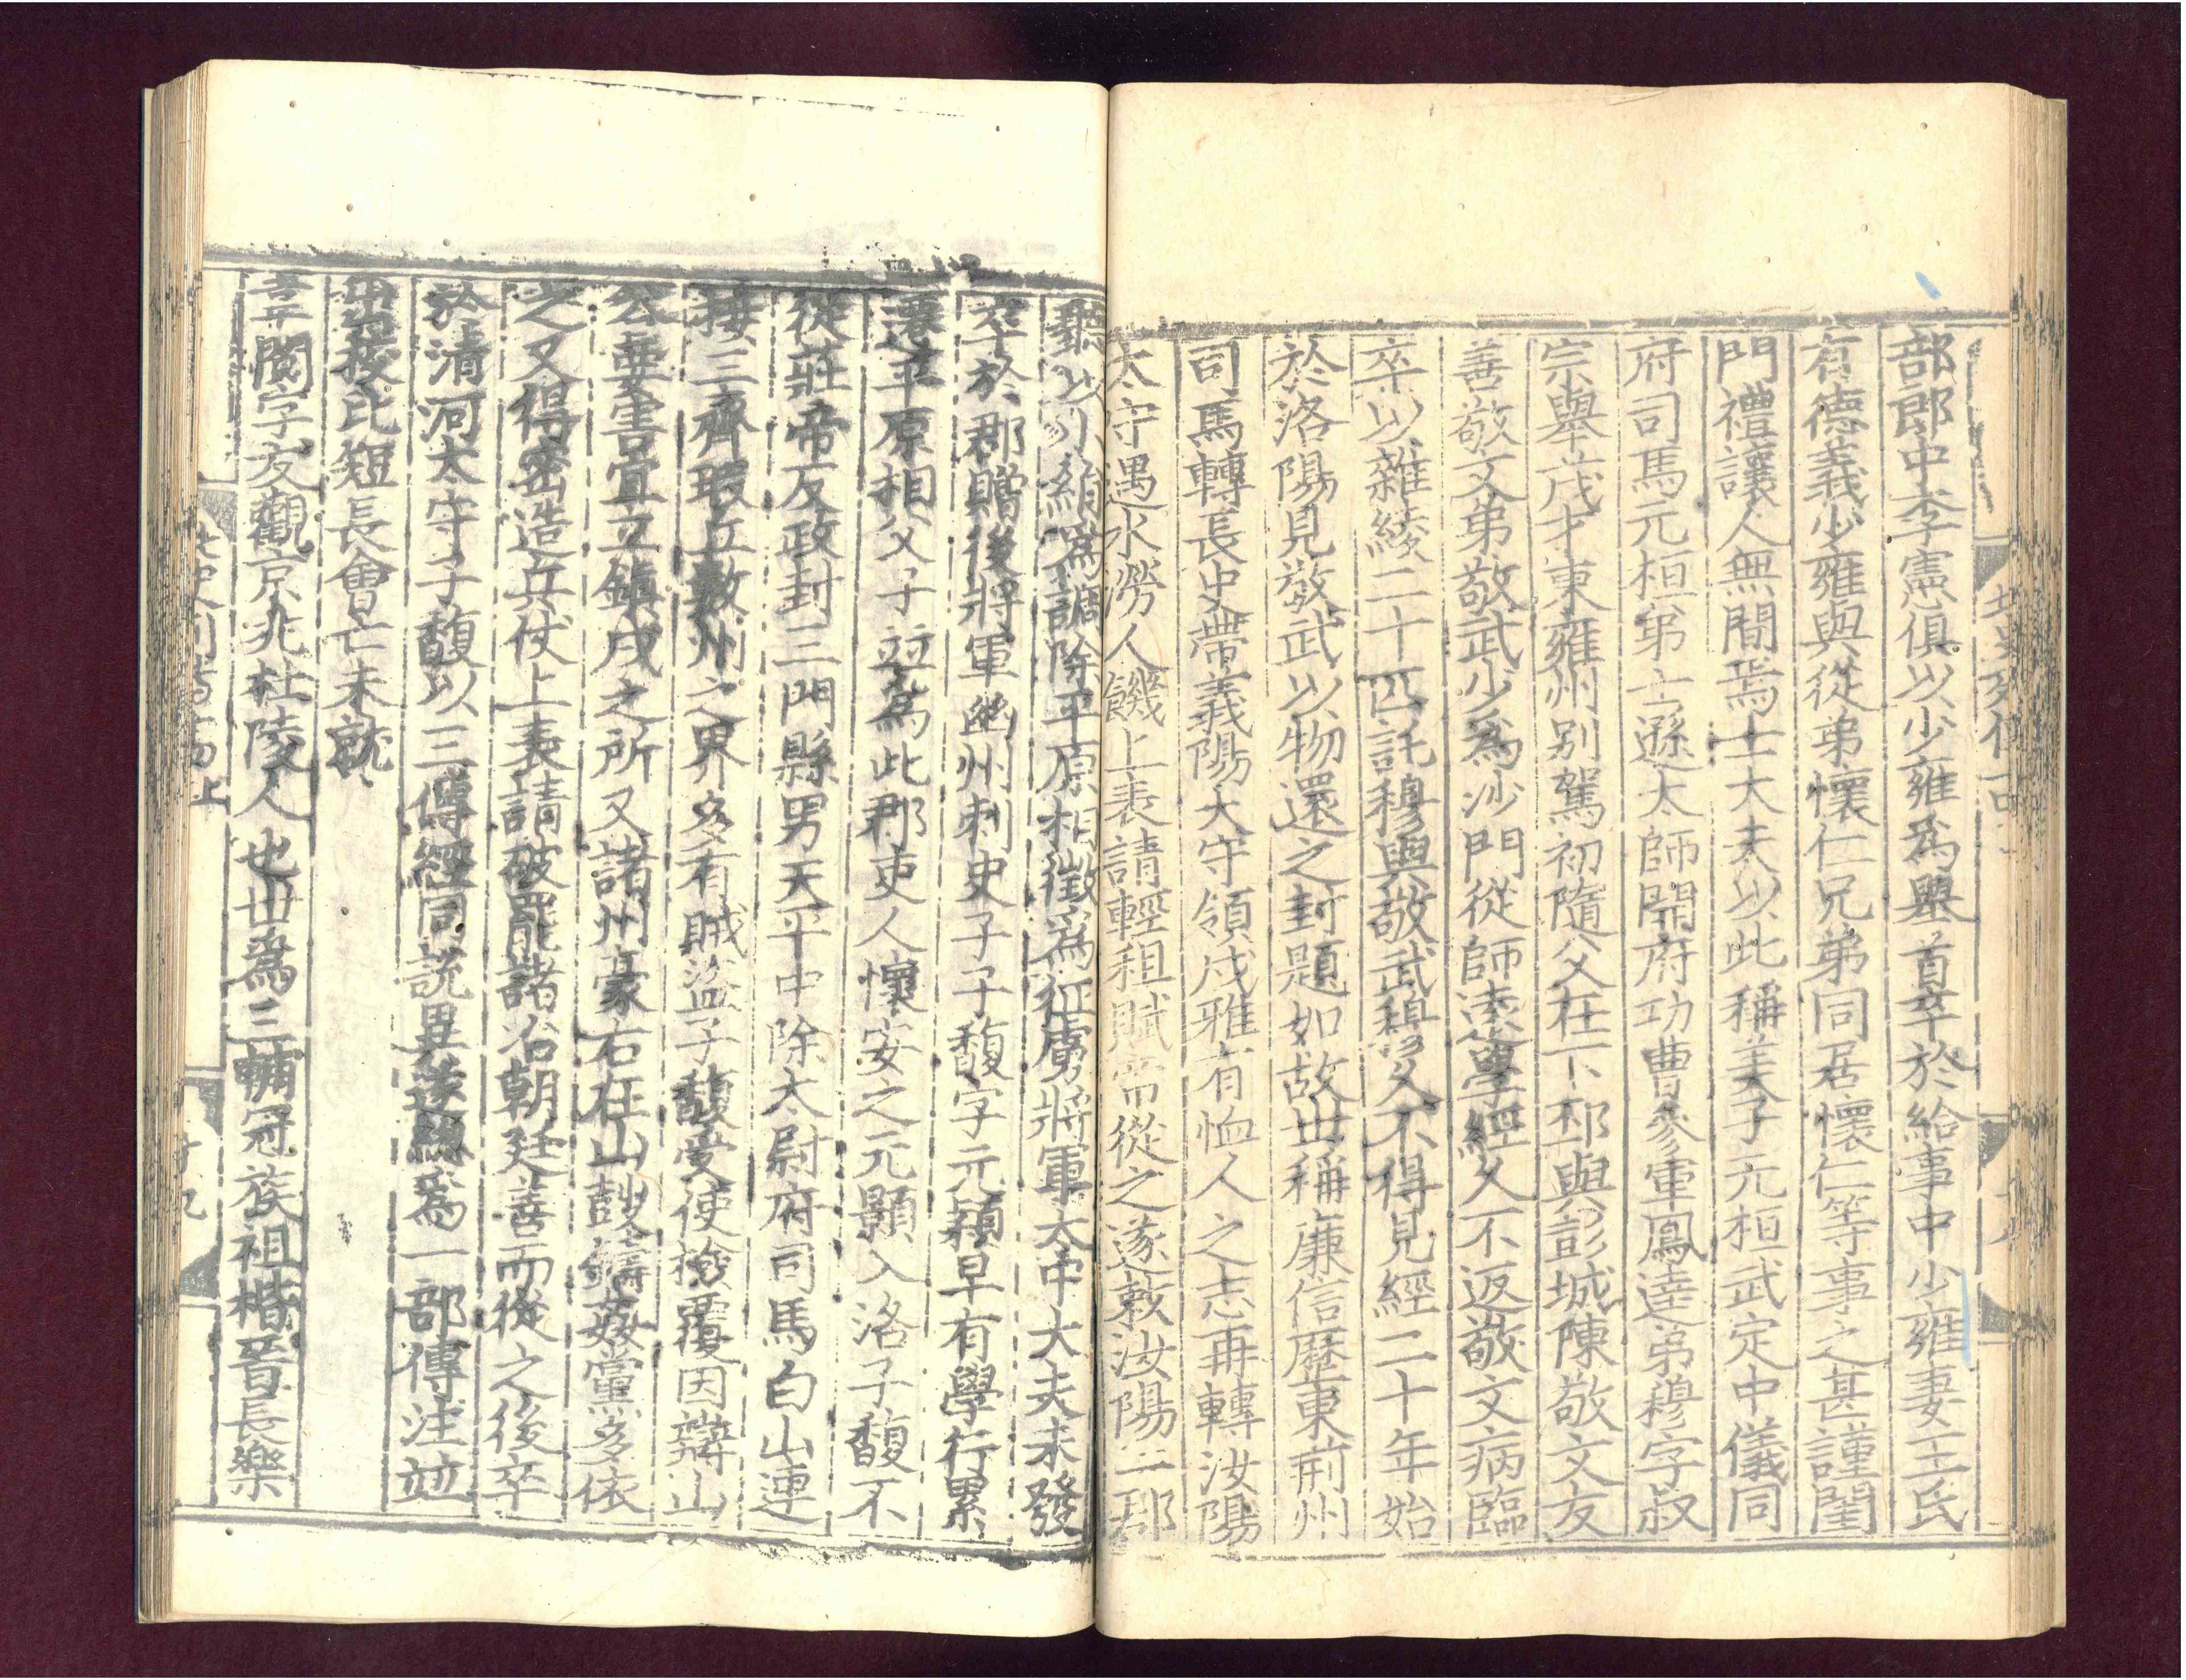 部郎中李憲俱以少雍爲舉首卒於給事中少雍妻王氏
有德義少雍與從弟懷仁兄弟同居懷仁等事之甚謹閨
門禮讓人無間焉士大夫以此稱美子元桓武定中儀同
府司馬元桓弟士遜太師開府功曹參軍鳳逹弟穆字叔
宗舉茂才東雍州别駕初隨父在下邳與彭城陳敬文友
善敬文弟敬武少爲沙門從師逺學經久不返敬文病臨
卒以雜綾二十匹託穆與敬武穆久不得見經二十年始
於洛陽見敬武以物還之封題如故世稱廉信歷東荊州
司馬轉長史帶義陽太守領戍雅有恤人之志再轉汝陽
太守遇水澇人饑上表請輕租賦常從之遂敕汝陽一郡
聽以小絹爲調除平原相徵爲征虜將軍太中大夫未發
卒於郡贈後將軍幽州刺史子子馥字元穎早有學行累
遷平原相父子並爲此郡吏人懷安之元顥入洛子馥不
從莊帝反政封三門縣男天平中除太尉府司馬白山連
接三齊瑕丘數州之界多有賊盜子馥受使檢覆因辨山
谷要害宜立鎮戍之所又諸州豪右在山鼓鑄姦黨多依
之又得密造兵仗上表請破罷諸冶朝廷善而從之後卒
於清河太守子馥以三傳經同說異遂緫爲一部傳注並
出挍比短長會亡未就
韋閬字友觀京兆杜陵人也世爲三輔冠族祖楷晉長樂